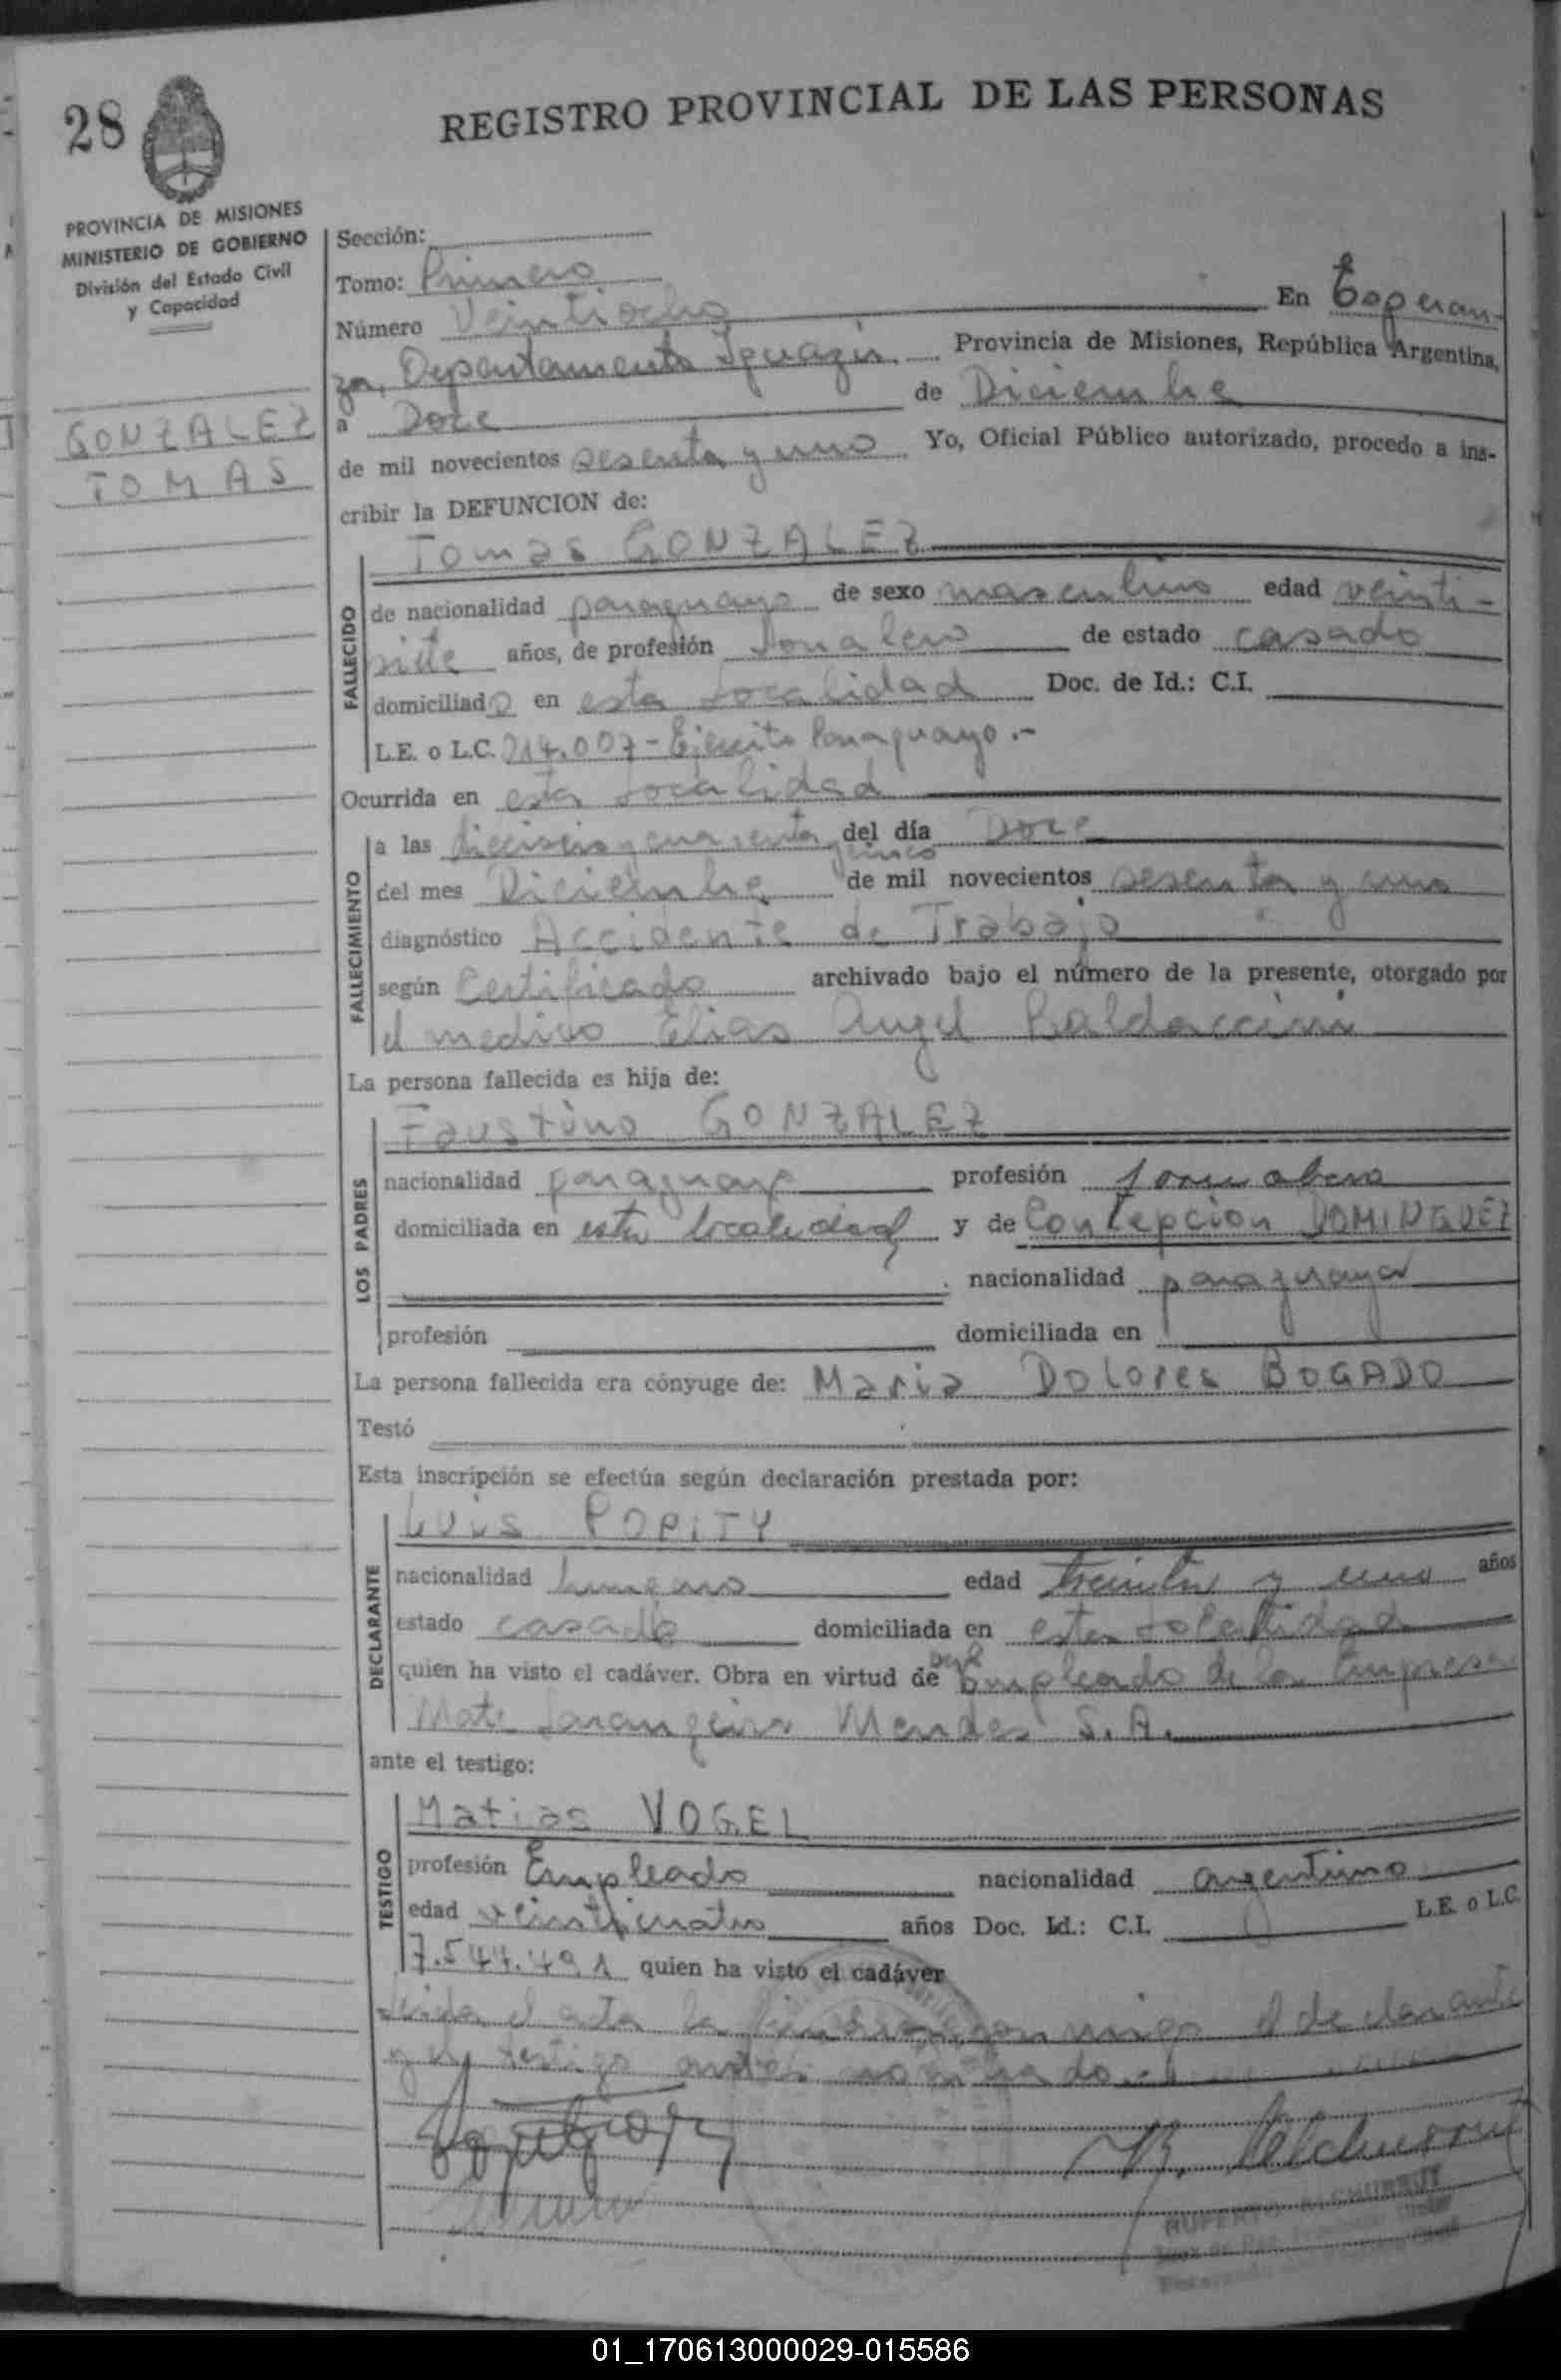 28
REGISTRO PROVINCIAL DE LAS PERSONAS
PROVINCIA DE MISIONES
MINISTERIO DE GOBIERNO
División del Estado Civil
y Capacidad
GONZALEZ
TOMAS
Sección:
Tomo: Primero
Número Veintiocho En Esperan-
za, Departamento Iguazú. Provincia de Misiones, República Argentina,
a Doce de Diciembre
de mil novecientos sesenta y uno Yo, Oficial Público autorizado, procedo a ins-
cribir la DEFUNCION de:
Tomas GONZALEZ
FALLECIDO
de nacionalidad paraguayo de sexo masculino edad veinti-
siete años, de profesión Jornalero de estado casado
domiciliado en esta Localidad Doc. de Id.: C.I.
L.E. o L.C. 014.007- Ejercito Paraguayo.-
Ocurrida en esta Localidad
FALLECIMIENTO
a las dieciseis y cuarenta y cinco del día Doce
del mes Diciembre de mil novecientos sesenta y uno
diagnóstico Accidente de Trabajo
según Certificado archivado bajo el número de la presente, otorgado por
el medico Elias Angel Baldaccini
La persona fallecida es hija de:
LOS PADRES
Faustino GONZALEZ
nacionalidad paraguayo profesión
domiciliada en esta localidad y de Concepcion DOMINGUEZ
nacionalidad paraguaya
profesión domiciliada en
La persona fallecida era cónyuge de: Maria Dolores BOGADO
Testó
Esta inscripción se efectúa según declaración prestada por:
DECLARANTE
Luis POPITY
nacionalidad edad treinta y uno años
estado casado domiciliada en esta Localidad
quien ha visto el cadáver. Obra en virtud de ser Empleado de la Empresa
Mate Larangeira Mendes S.A.
ante el testigo:
TESTIGO
Matias VOGEL
profesión Empleado nacionalidad argentino
edad veinticuatro años Doc. Id.: C.I. L.E. o L.C.
7.544.491 quien ha visto el cadáver
Leida el acta la firman conmigo el declarante
y el testigo antes nombrado.
01_170613000029-015586